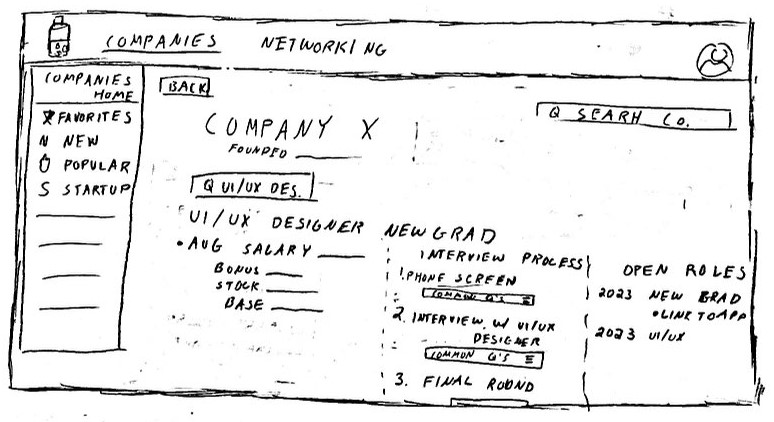 COMPANIES NETWORKING
COMPANIES
HOME
FAVORITES
N NEW
POPULAR
S STARTUP
BACK
COMPANY X
FOUNDED
Q SEARH CO.
Q UI/UX DES.
UI/UX DESIGNER NEW GRAD
• AVG SALARY
BONUS
STOCK
BASE
INTERVIEW PROCESS
1. PHONE SCREEN
COMMON Q'S
2. INTERVIEW W/ UI/UX
DESIGNER
COMMON Q'S
3. FINAL ROUND
OPEN ROLES
2023 NEW GRAD
• LINK TO APP
2023 UI/UX